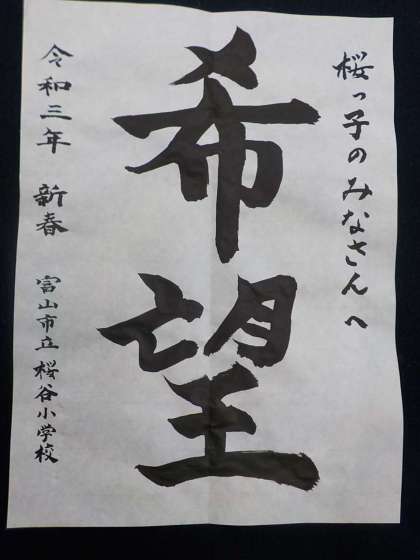 桜っ子のみなさんへ
希望
令和三年 新春 富山市立桜谷小学校